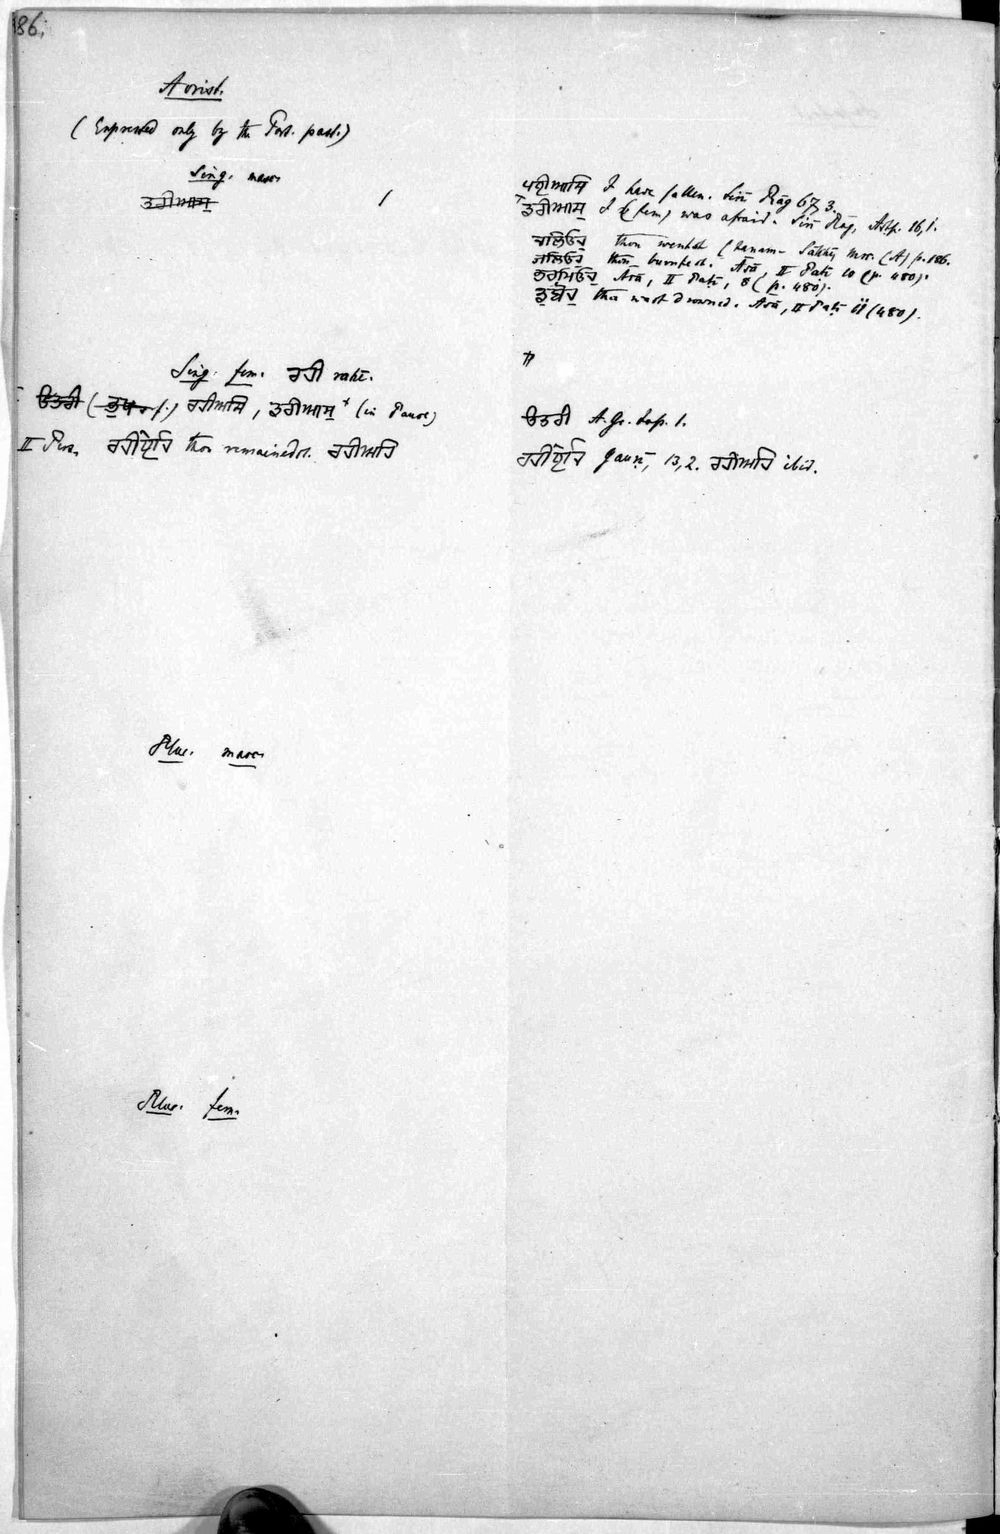 186.
Aorist.
(Expressed only by the Part. past.)
Sing. masc.
ਡਰੀਆਸੁ
ਪਈਆਸਿ I have fallen. Sirī Rāg 67,3.
ਡਰੀਆਸੁ I (fem) was afraid. Sirī Rāg, Astp. 16,1.
ਚਲਿਓਹੁ thou wentst (Janam-Sākhī, Mss. (A) p. 186.
ਜਲਿਓਹੁ thou burntest. Āsā, II Patī 10 (p. 480).
ਭਰਮਿਓਹੁ Āsā, II Patī, 8 (p. 480).
ਡੁਬੋਹੁ thou wast drowned. Āsā, II Patī (480).
Sing. fem. ਰਹੀ rahī.
ਓਤਰੀ ( f.) ਰਹੀਅਸਿ, ਡਰੀਆਸੁ + (in Pause)
II Pers. ਰਹੀਏਹਿ thou remainedst. ਰਹੀਅਹਿ
ਓਤਰੀ A. Gr. Lop. 1.
ਰਹੀਏਹਿ Gauṛī, 13,2. ਰਹੀਅਹਿ ibid.
Plur. masc.
Plur. fem.